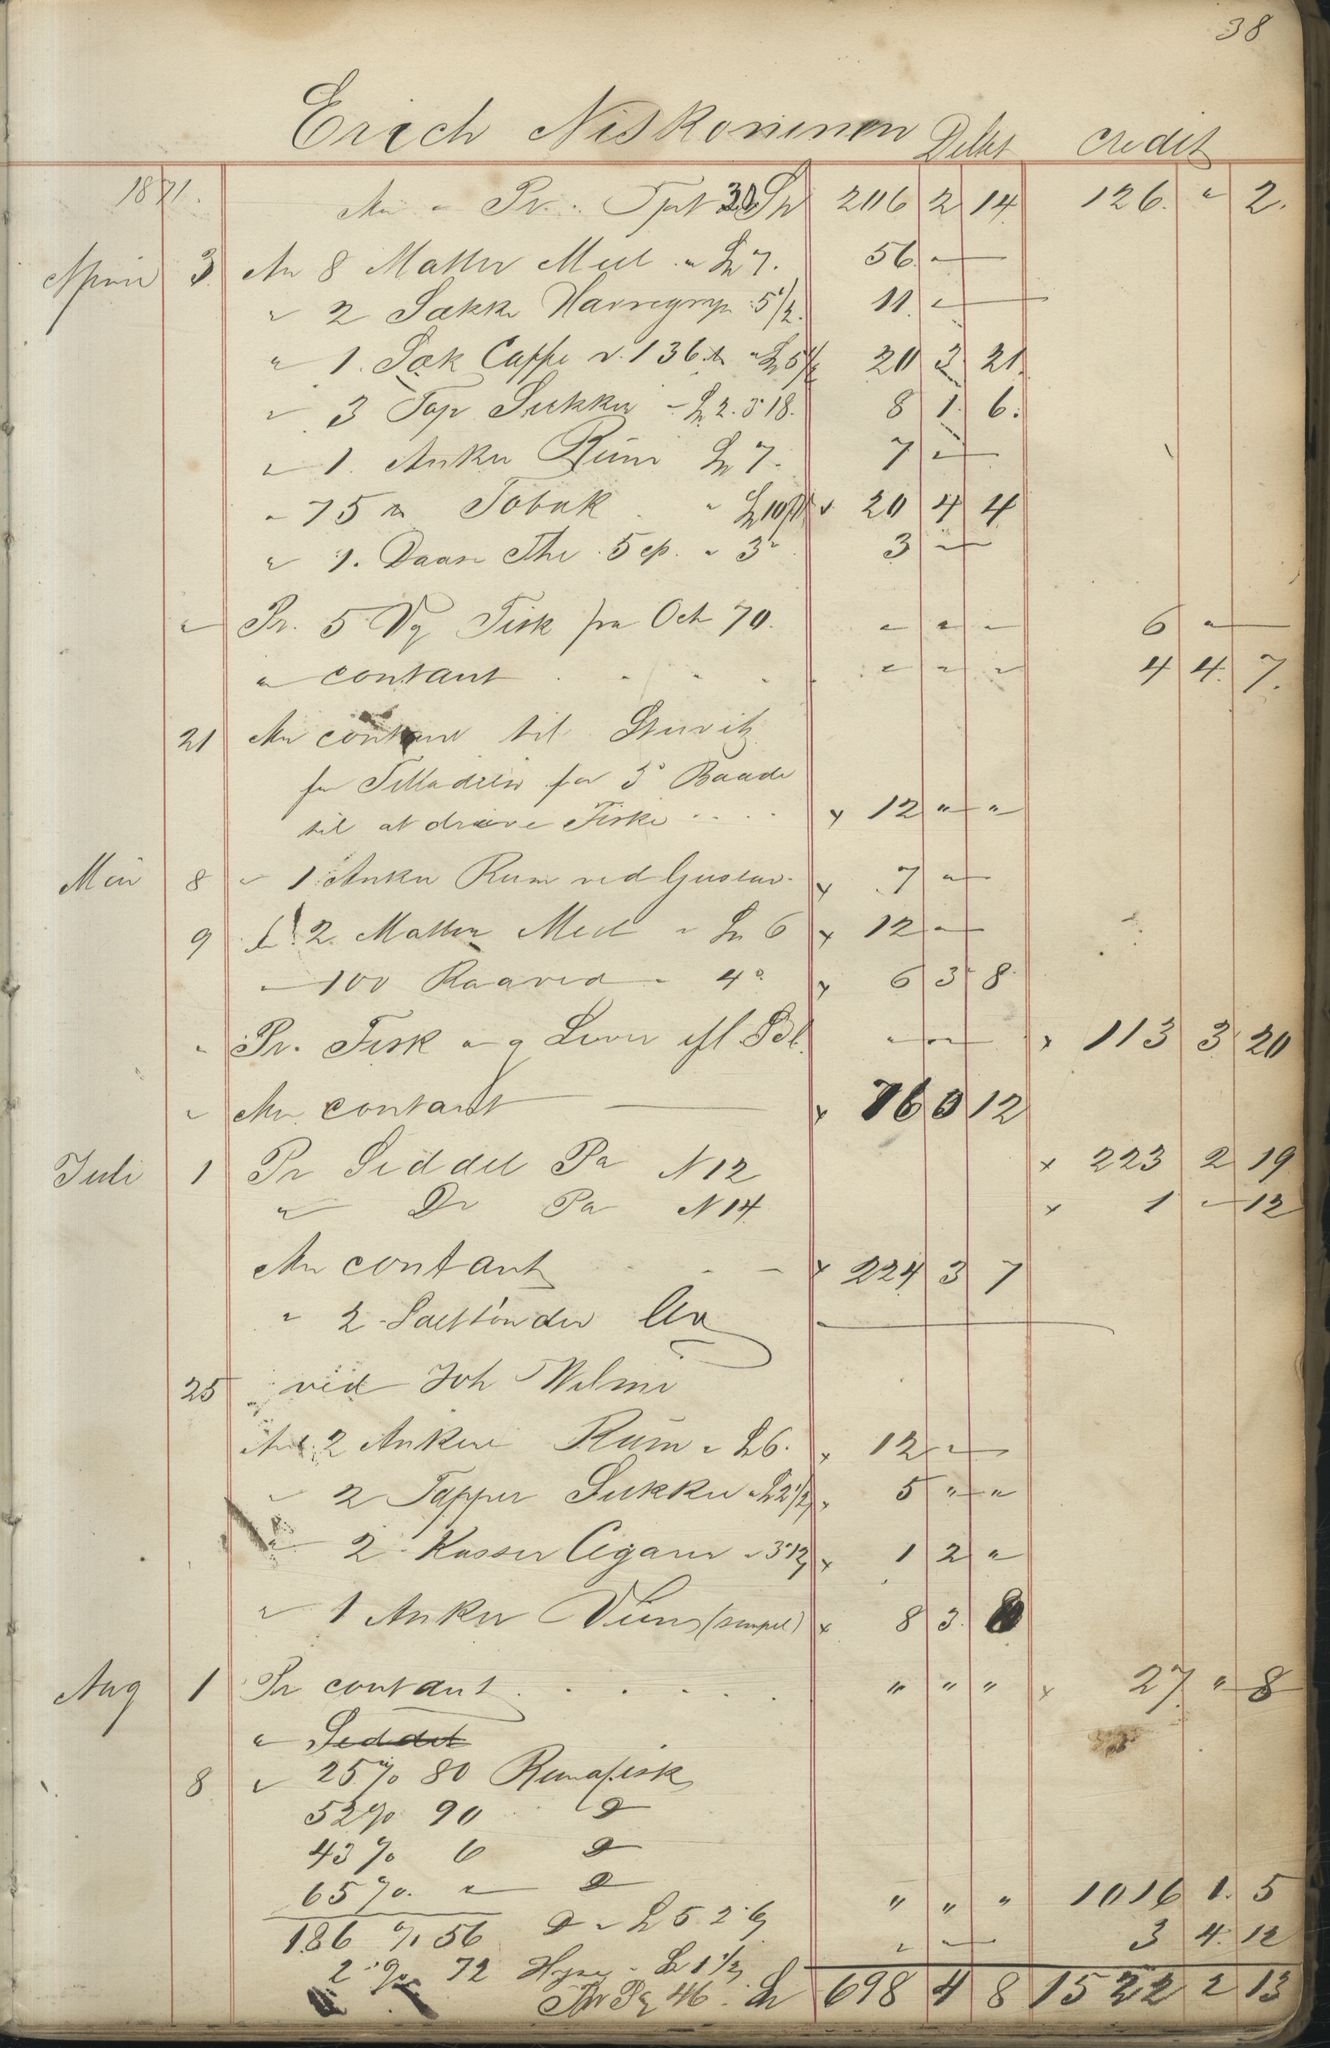 38
Erich Niskoninen Debet credit
1871. An " Pr. " Tpt 30 Sp 206 2 14 126. " 2.
April 3 An 8 Matter Meel " Sp 7. 56 "
" 2 Sække Havregryn 5 1/2. 11 "
" 1. Sæk Caffe v. 136 ℔ " Sp 5 1/2 20 3 21.
" 3 Top Sukker " Sp 2. 3 18. 8 1. 6.
" 1. Anker Rum Sp 7. 7 "
" 75 ℔ Tobak " 20 4 4
" 1. Daase The . 5 " 3 " 3 "
" Pr. 5 Vg Fisk fra Oct 70. " " " 6 "
" contant . . . . " " " 4 4. 7.
21 An contant til
for Tilladelse for 3 Baade
til at drive Fiske . . . . x 12 " "
Mai 8 " 1 Anker Rum ved Gustav. x 7 "
9 2. Matter Meel " Sp 6 x 12 "
" 100 Raaved " 4 x 6 3 8
" Pr. Fisk og Lever " " x 113 3 20
" An contant x 76 0 12
Juli 1 Pr Seddel Pa N 12 x 223 2 19
" Do Pa N 14 x 1 " 12
An contant . . x 224 3 7
" 2 Salttønder
25 ved Joh
An 2 Ankere Rum " Sp 6. x 12 "
" 2 Topper Sukker " Sp 2 1/2 x 5 " "
" 2 Kasser Cigarer " 3 12 x 1 2 "
" 1 Anker Viin (simpel) x 8 3 8
Aug 1 Pr contant . . . . . " " " x 27 " 8
" Seddel
8 " 25 % 80 Rundfisk
52 % 90 D
43 % 6 D
65 %. " D " " " 1016 1. 5
186 % 56 D " Sp 5. 2. 6 " " 3 4. 12
2 % 72 Hyse " Sp 1 1/2
Tr Pg 46 . Sp 698 4 8 1522 2 13